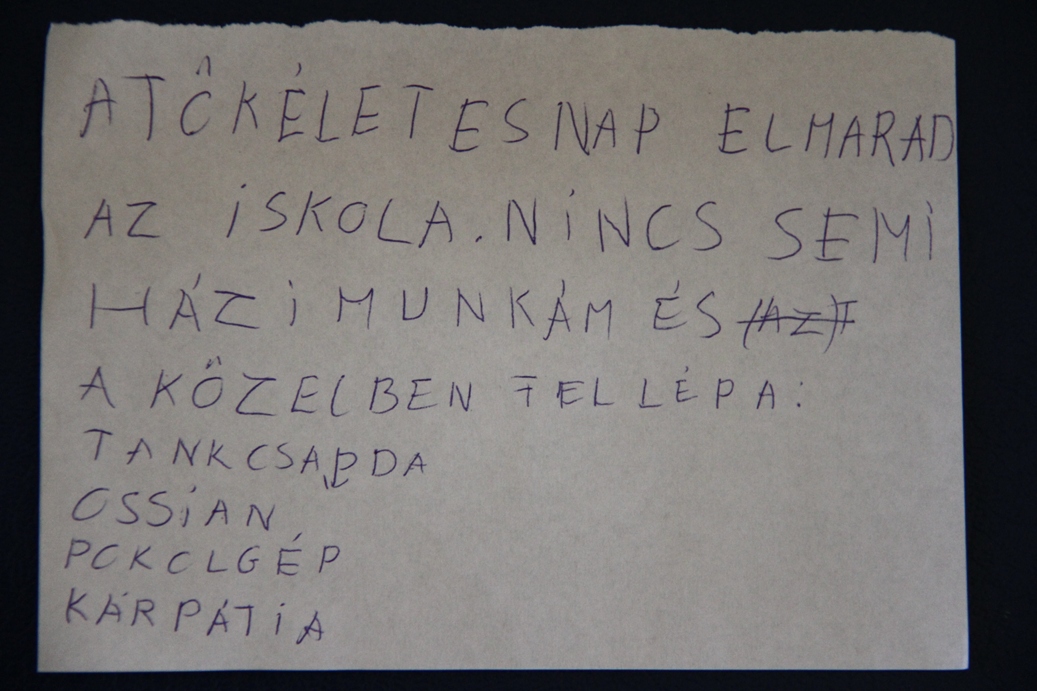 A TŐKÉLETES NAP ELMARAD
AZ ISKOLA. NINCS SEMI
HÁZI MUNKÁM ÉS (AZ)
A KŐZELBEN FELLÉP A:
TANKCSAPDA
OSSIAN
POKOLGÉP
KÁRPÁTIA